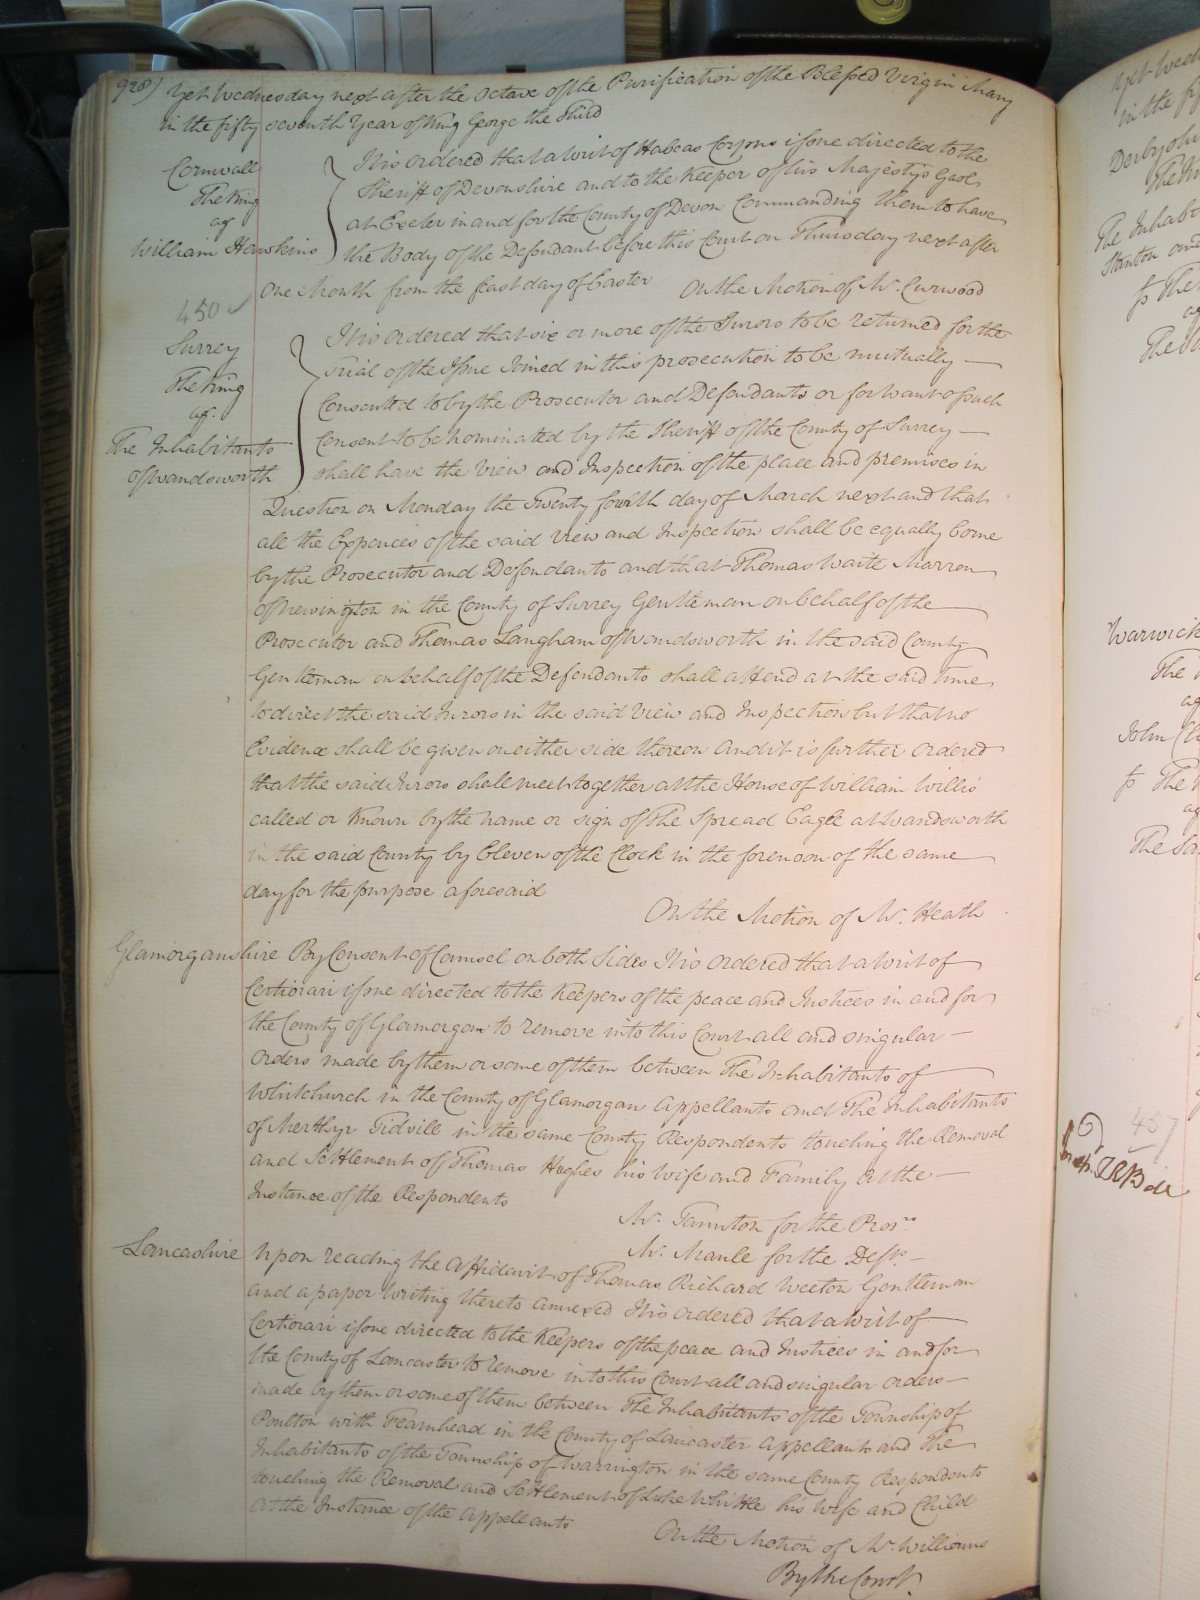 928) Yet Wednesday next after the Octave of the Purification of the Blessed Virgin Mary
in the fifty seventh Year of King George the Third
Cornwall
The King
agt
William Hawkins
It is ordered that a Writ of Habeas Corpus issue directed to the
Sheriff of Devonshire and to the Keeper of his Majesty's Gaol
at Exeter in and for the County of Devon Commanding them to have
the Body of the Defendant before this Court on Thursday next after
One Month from the feast day of Easter On the Motion of Mr. Curwood
450
Surrey
The King
agt.
The Inhabitants
of Wandsworth
It is ordered that six or more of the Jurors to be returned for the
Trial of the Issue Joined in this prosecution to be mutually
Consented to by the Prosecutor and Defendants or for want of such
Consent to be nominated by the Sheriff of the County of Surrey
shall have the View and Inspection of the place and premises in
Question on Monday the Twenty fourth day of March next and that
all the Expences of the said View and Inspection shall be equally borne
by the Prosecutor and Defendants and that Thomas Waite Marson
of Newington in the County of Surrey Gentleman on behalf of the
Prosecutor and Thomas Langham of Wandsworth in the said County
Gentleman on behalf of the Defendants shall attend at the said time
to direct the said Jurors in the said View and Inspection but that no
Evidence shall be given on either side thereon And it is further ordered
that the said Jurors shall meet together at the House of William Willis
called or known by the name or sign of The Spread Eagle at Wandsworth
in the said County by Eleven of the Clock in the forenoon of the same
day for the purpose aforesaid
On the Motion of Mr. Heath
Glamorganshire By Consent of Counsel on both Sides It is ordered that a Writ of
Certiorari issue directed to the Keepers of the peace and Justices in and for
the County of Glamorgan to remove into this Court all and singular
Orders made by them or some of them between The Inhabitants of
Whitchurch in the County of Glamorgan Appellants and The Inhabitants
of Merthyr Tidville in the same County Respondents touching the Removal
and Settlement of Thomas Hughes his Wife and Family At the
Instance of the Respondents
Mr. Taunton for the Prosr.
Mr. Maule for the Defts.
Lancashire Upon reading the Affidavit of Thomas Richard Weeton Gentleman
and a paper Writing thereto annexed It is ordered that a Writ of
Certiorari issue directed to the Keepers of the peace and Justices in and for
the County of Lancaster to remove into this Court all and singular orders
made by them or some of them between The Inhabitants of the Township of
Poulton with Fearnhead in the County of Lancaster Appellants and The
Inhabitants of the Township of Warrington in the same County Respondents
touching the Removal and Settlement of Luke Whittle his Wife and Child
At the Instance of the Appellants
On the Motion of Mr. Williams
By the Court.
Yet Wed
in the fi
Derbyshi
The Ki
The Inhabi
Stanton and
The
ag
The
Warwick
The
ag
John
The
ag
The Sa
457